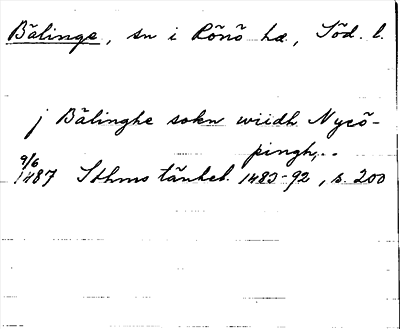 Bälinge, sn i Rönö hd, Söd. l.
j Bälinghe sokn wiidh Nycö-
pingh,..
9/6
1487 Sthms tänkeb. 1483-92, s. 200